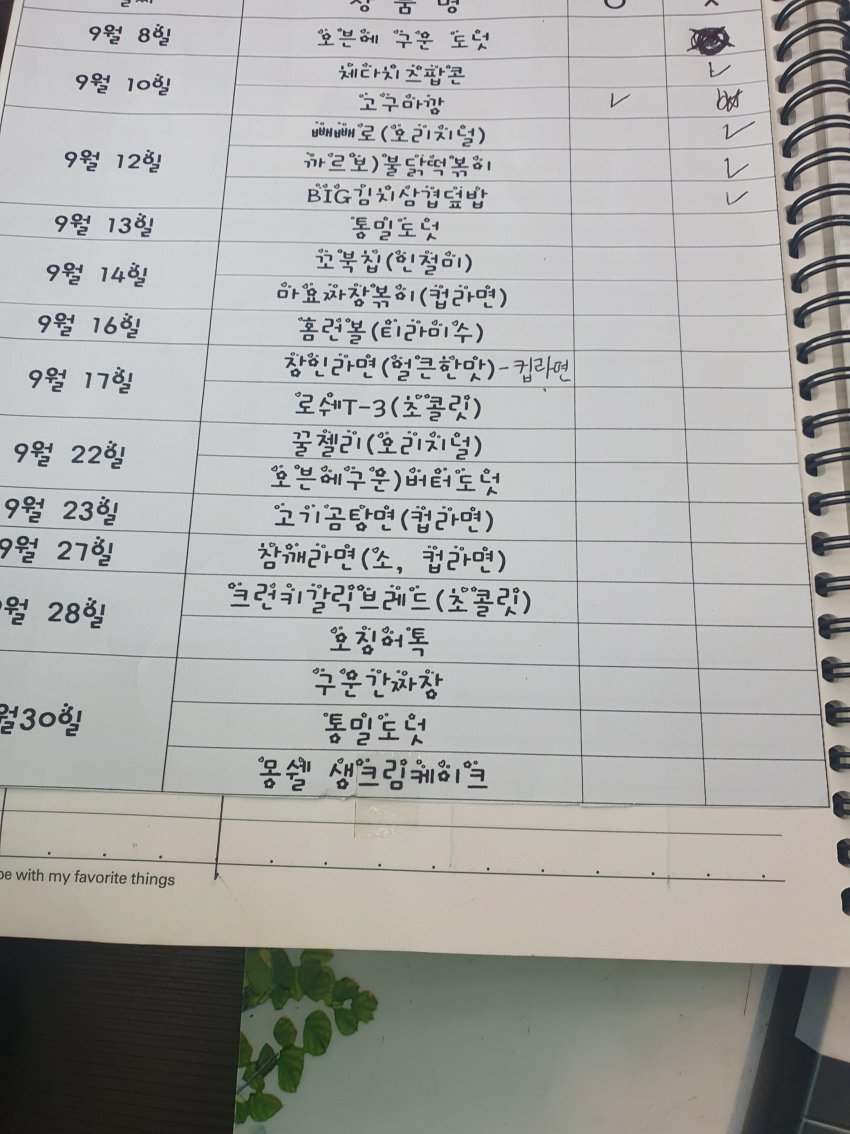 상 품 명 O X
9월 8일 오븐에 구운 도넛
9월 10일 체다치즈팝콘 ✓
고구마깡 ✓
9월 12일 빼빼로(오리지널) ✓
까르보)불닭떡볶이 ✓
BIG김치삼겹덮밥 ✓
9월 13일 통밀도넛
9월 14일 꼬북칩(인절미)
마요짜장볶이(컵라면)
9월 16일 홈런볼(티라미수)
9월 17일 장인라면(얼큰한맛)-컵라면
로쉐T-3(초콜릿)
9월 22일 꿀젤리(오리지널)
오븐에구운)버터도넛
9월 23일 고기곰탕면(컵라면)
9월 27일 참깨라면(소, 컵라면)
월 28일 크런키갈릭브레드(초콜릿)
오징어톡
월30일 구운간짜장
통밀도넛
몽쉘 생크림케이크
be with my favorite things